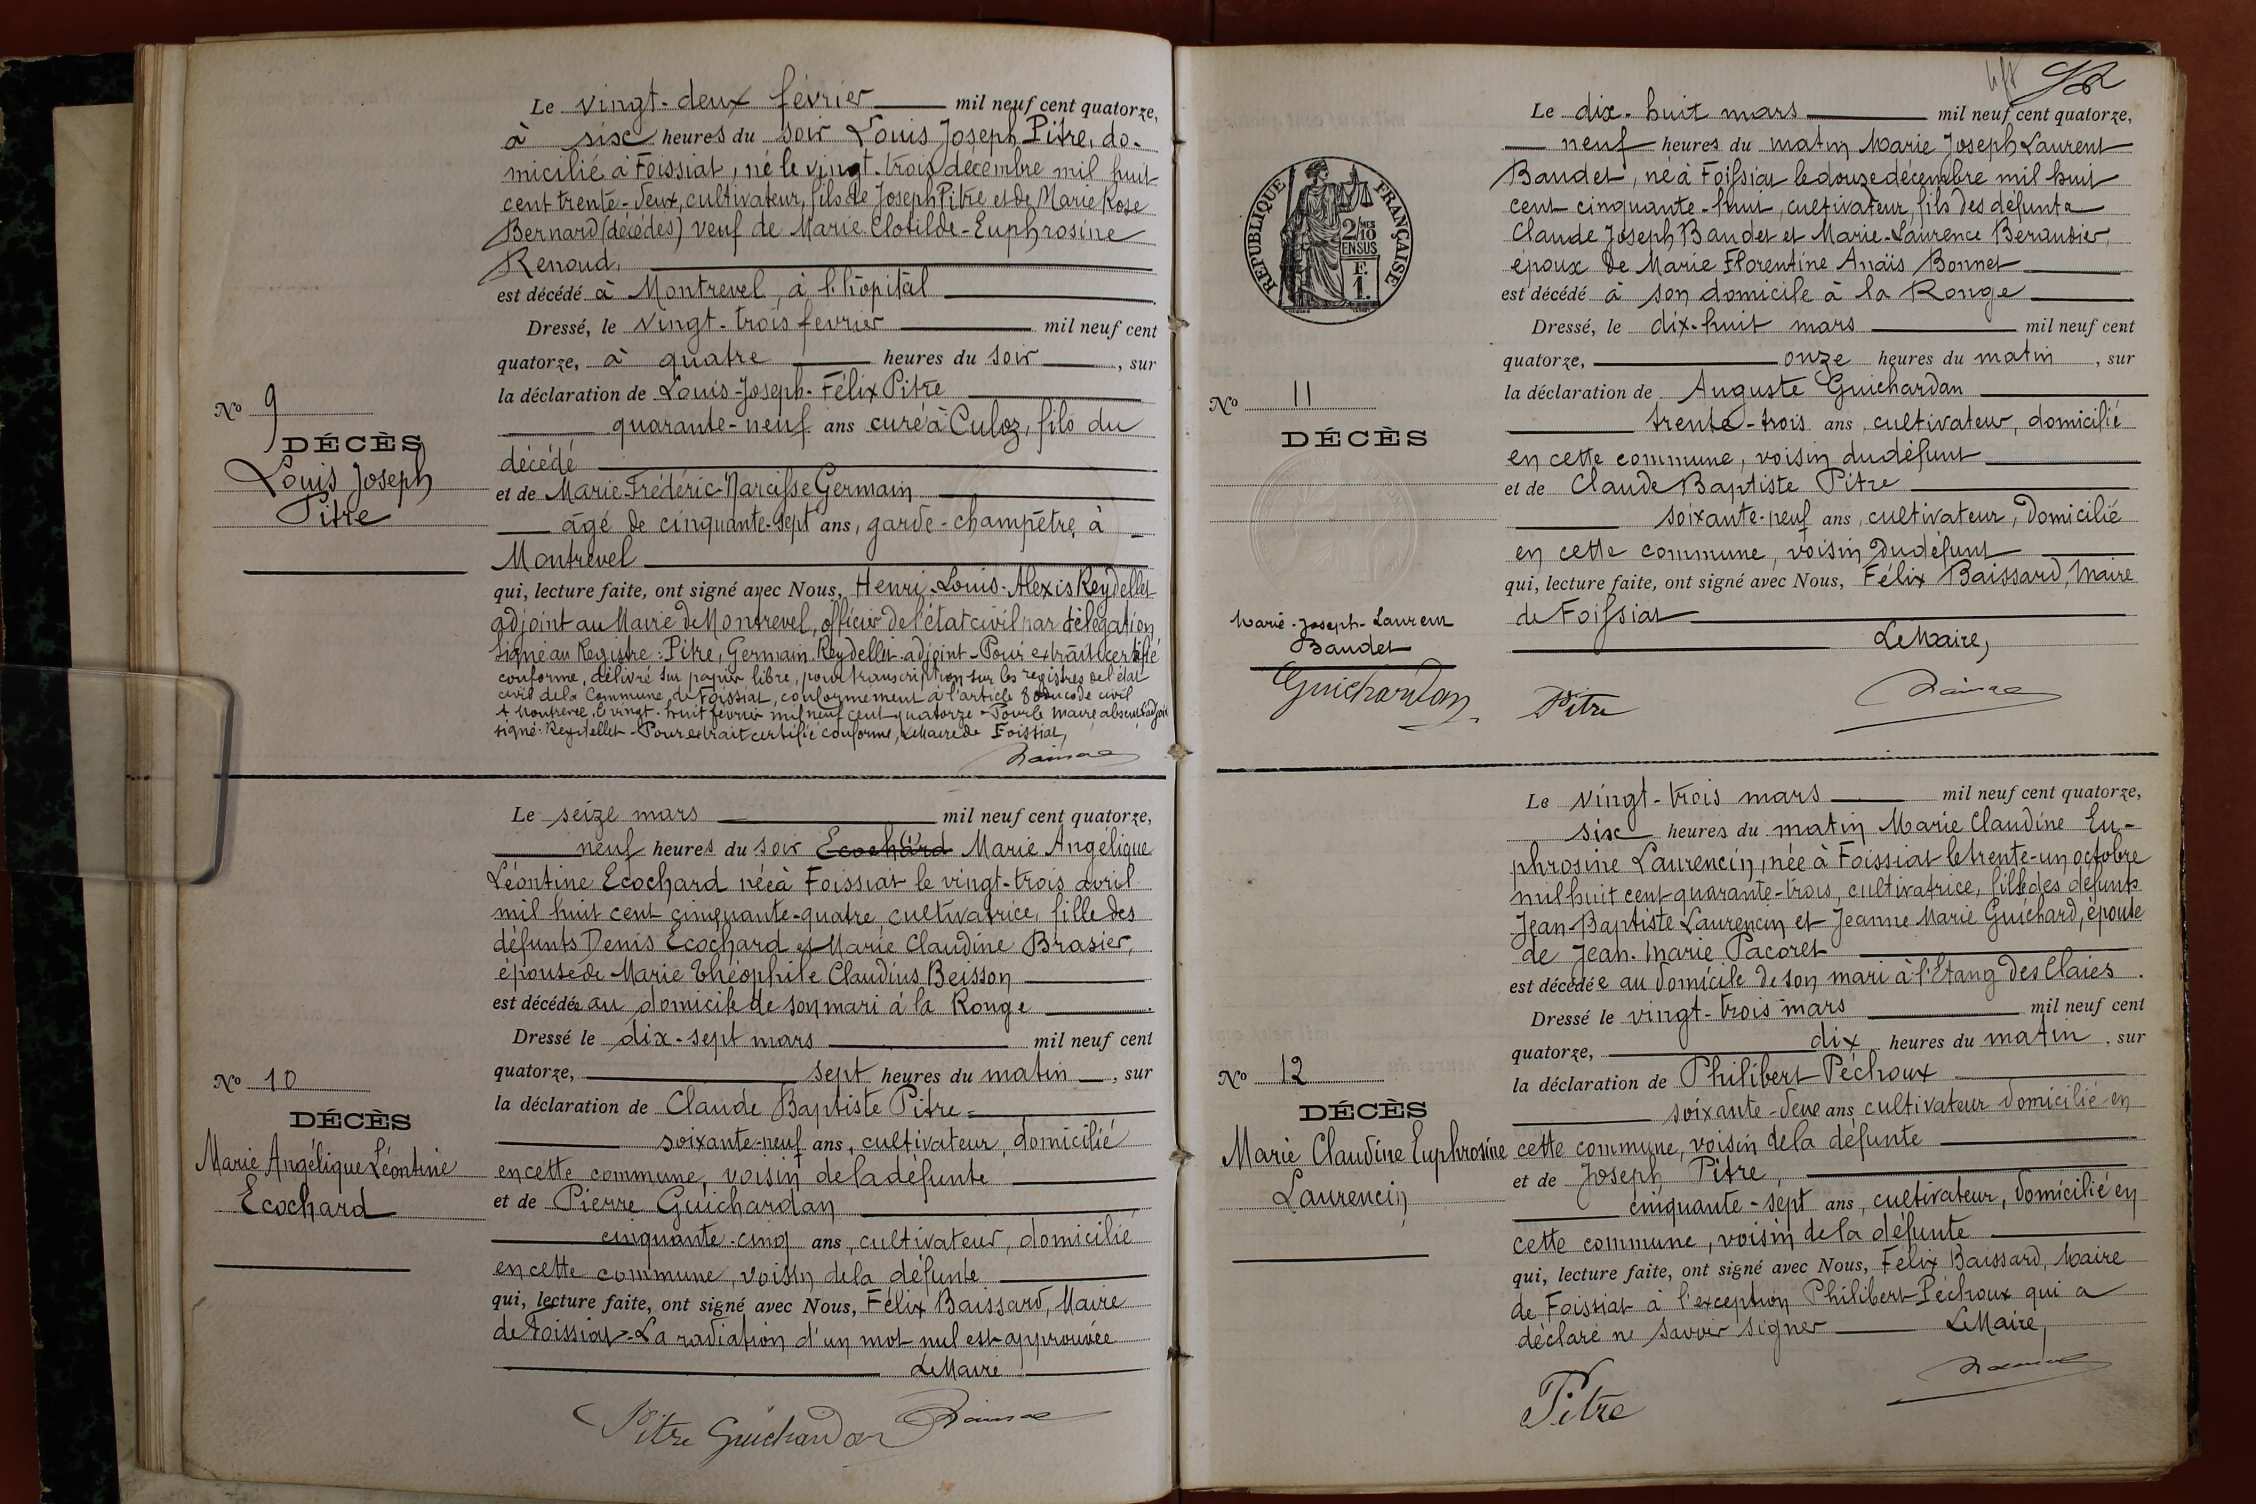 Le vingt-deux février mil neuf cent quatorze,
à sixe heures du soir Louis Joseph Pitre, do-
micilié à Foissiat, né le vingt-trois décembre mil huit
cent trente-deux, cultivateur, fils de Joseph Pitre et de Marie Rose
Bernard (décédés) veuf de Marie Clotilde-Euphrosine
Renoud.
est décédé à Montrevel, à l'hôpital
Dressé, le vingt-trois février mil neuf cent
quatorze, à quatre heures du soir, sur
la déclaration de Louis-Joseph-Félix Pitre
quarante-neuf ans curé à Culoz, fils du
décédé
et de Marie-Frédéric-Narcisse Germain
âgé de cinquante-sept ans, garde-champêtre à
Montrevel
qui, lecture faite, ont signé avec Nous, Henri-Louis-Alexis Reydellet
adjoint au Maire de Montrevel, officier de l'état civil par délégation
signé au Registre: Pitre, Germain. Reydellet adjoint - Pour extrait certifié
conforme, délivré sur papier libre, pour transcription sur les registres de l'état
civil de la Commune de Foissiat, conformément à l'article 80 du code civil
A Montrevel, le vingt-huit février mil neuf cent quatorze - Pour le maire absent l'adjoint
signé: Reydellet - Pour extrait certifié conforme, Le Maire de Foissiat,
No 9
DÉCÈS
Louis Joseph
Pitre
Le seize mars mil neuf cent quatorze,
neuf heures du soir Ecochard Marie Angélique
Léontine Ecochard née à Foissiat le vingt-trois avril
mil huit cent cinquante-quatre cultivatrice, fille des
défunts Denis Ecochard et Marie Claudine Brasier,
épouse de Marie Théophile Claudius Beisson
est décédée au domicile de son mari à la Ronge
Dressé le dix-sept mars mil neuf cent
quatorze, sept heures du matin, sur
la déclaration de Claude Baptiste Pitre
soixante-neuf ans, cultivateur, domicilié
en cette commune, voisin de la défunte
et de Pierre Guichardan
cinquante-cinq ans, cultivateur, domicilié
en cette commune, voisin de la défunte
qui, lecture faite, ont signé avec Nous, Félix Baissard, Maire
de Foissiat - La radiation d'un mot nul est approuvée
Le Maire
Pitre Guichardan
No 10
DÉCÈS
Marie Angélique Léontine
Ecochard
92
Le dix-huit mars mil neuf cent quatorze,
neuf heures du matin Marie Joseph Laurent
Baudet, né à Foissiat le douze décembre mil huit
cent cinquante-huit, cultivateur, fils des défunts
Claude Joseph Baudet et Marie-Laurence Beraudier,
époux de Marie Florentine Anaïs Bonnet
est décédé à son domicile à la Ronge
Dressé, le dix-huit mars mil neuf cent
quatorze, onze heures du matin, sur
la déclaration de Auguste Guichardan
trente-trois ans, cultivateur, domicilié
en cette commune, voisin du défunt
et de Claude Baptiste Pitre
soixante-neuf ans, cultivateur, domicilié
en cette commune, voisin du défunt
qui, lecture faite, ont signé avec Nous, Félix Baissard, Maire
de Foissiat
Le Maire,
Guichardan Pitre
RÉPUBLIQUE FRANÇAISE
2/10
EN SUS
F.
1.
No 11
DÉCÈS
Marie-Joseph-Laurent
Baudet
Le vingt-trois mars mil neuf cent quatorze,
sixe heures du matin Marie Claudine Eu-
phrosine Laurencin, née à Foissiat le trente-un octobre
mil huit cent quarante-trois, cultivatrice, fille des défunts
Jean Baptiste Laurencin et Jeanne Marie Guichard, épouse
de Jean-Marie Pacoret
est décédée au domicile de son mari à l'Etang des Claies.
Dressé le vingt-trois mars mil neuf cent
quatorze, dix heures du matin, sur
la déclaration de Philibert Péchoux
soixante-deux ans cultivateur domicilié en
cette commune, voisin de la défunte
et de Joseph Pitre,
cinquante-sept ans, cultivateur, domicilié en
cette commune, voisin de la défunte
qui, lecture faite, ont signé avec Nous, Félix Baissard, Maire
de Foissiat à l'exception Philibert Péchoux qui a
déclaré ne savoir signer Le Maire,
Pitre
No 12
DÉCÈS
Marie Claudine Euphrosine
Laurencin